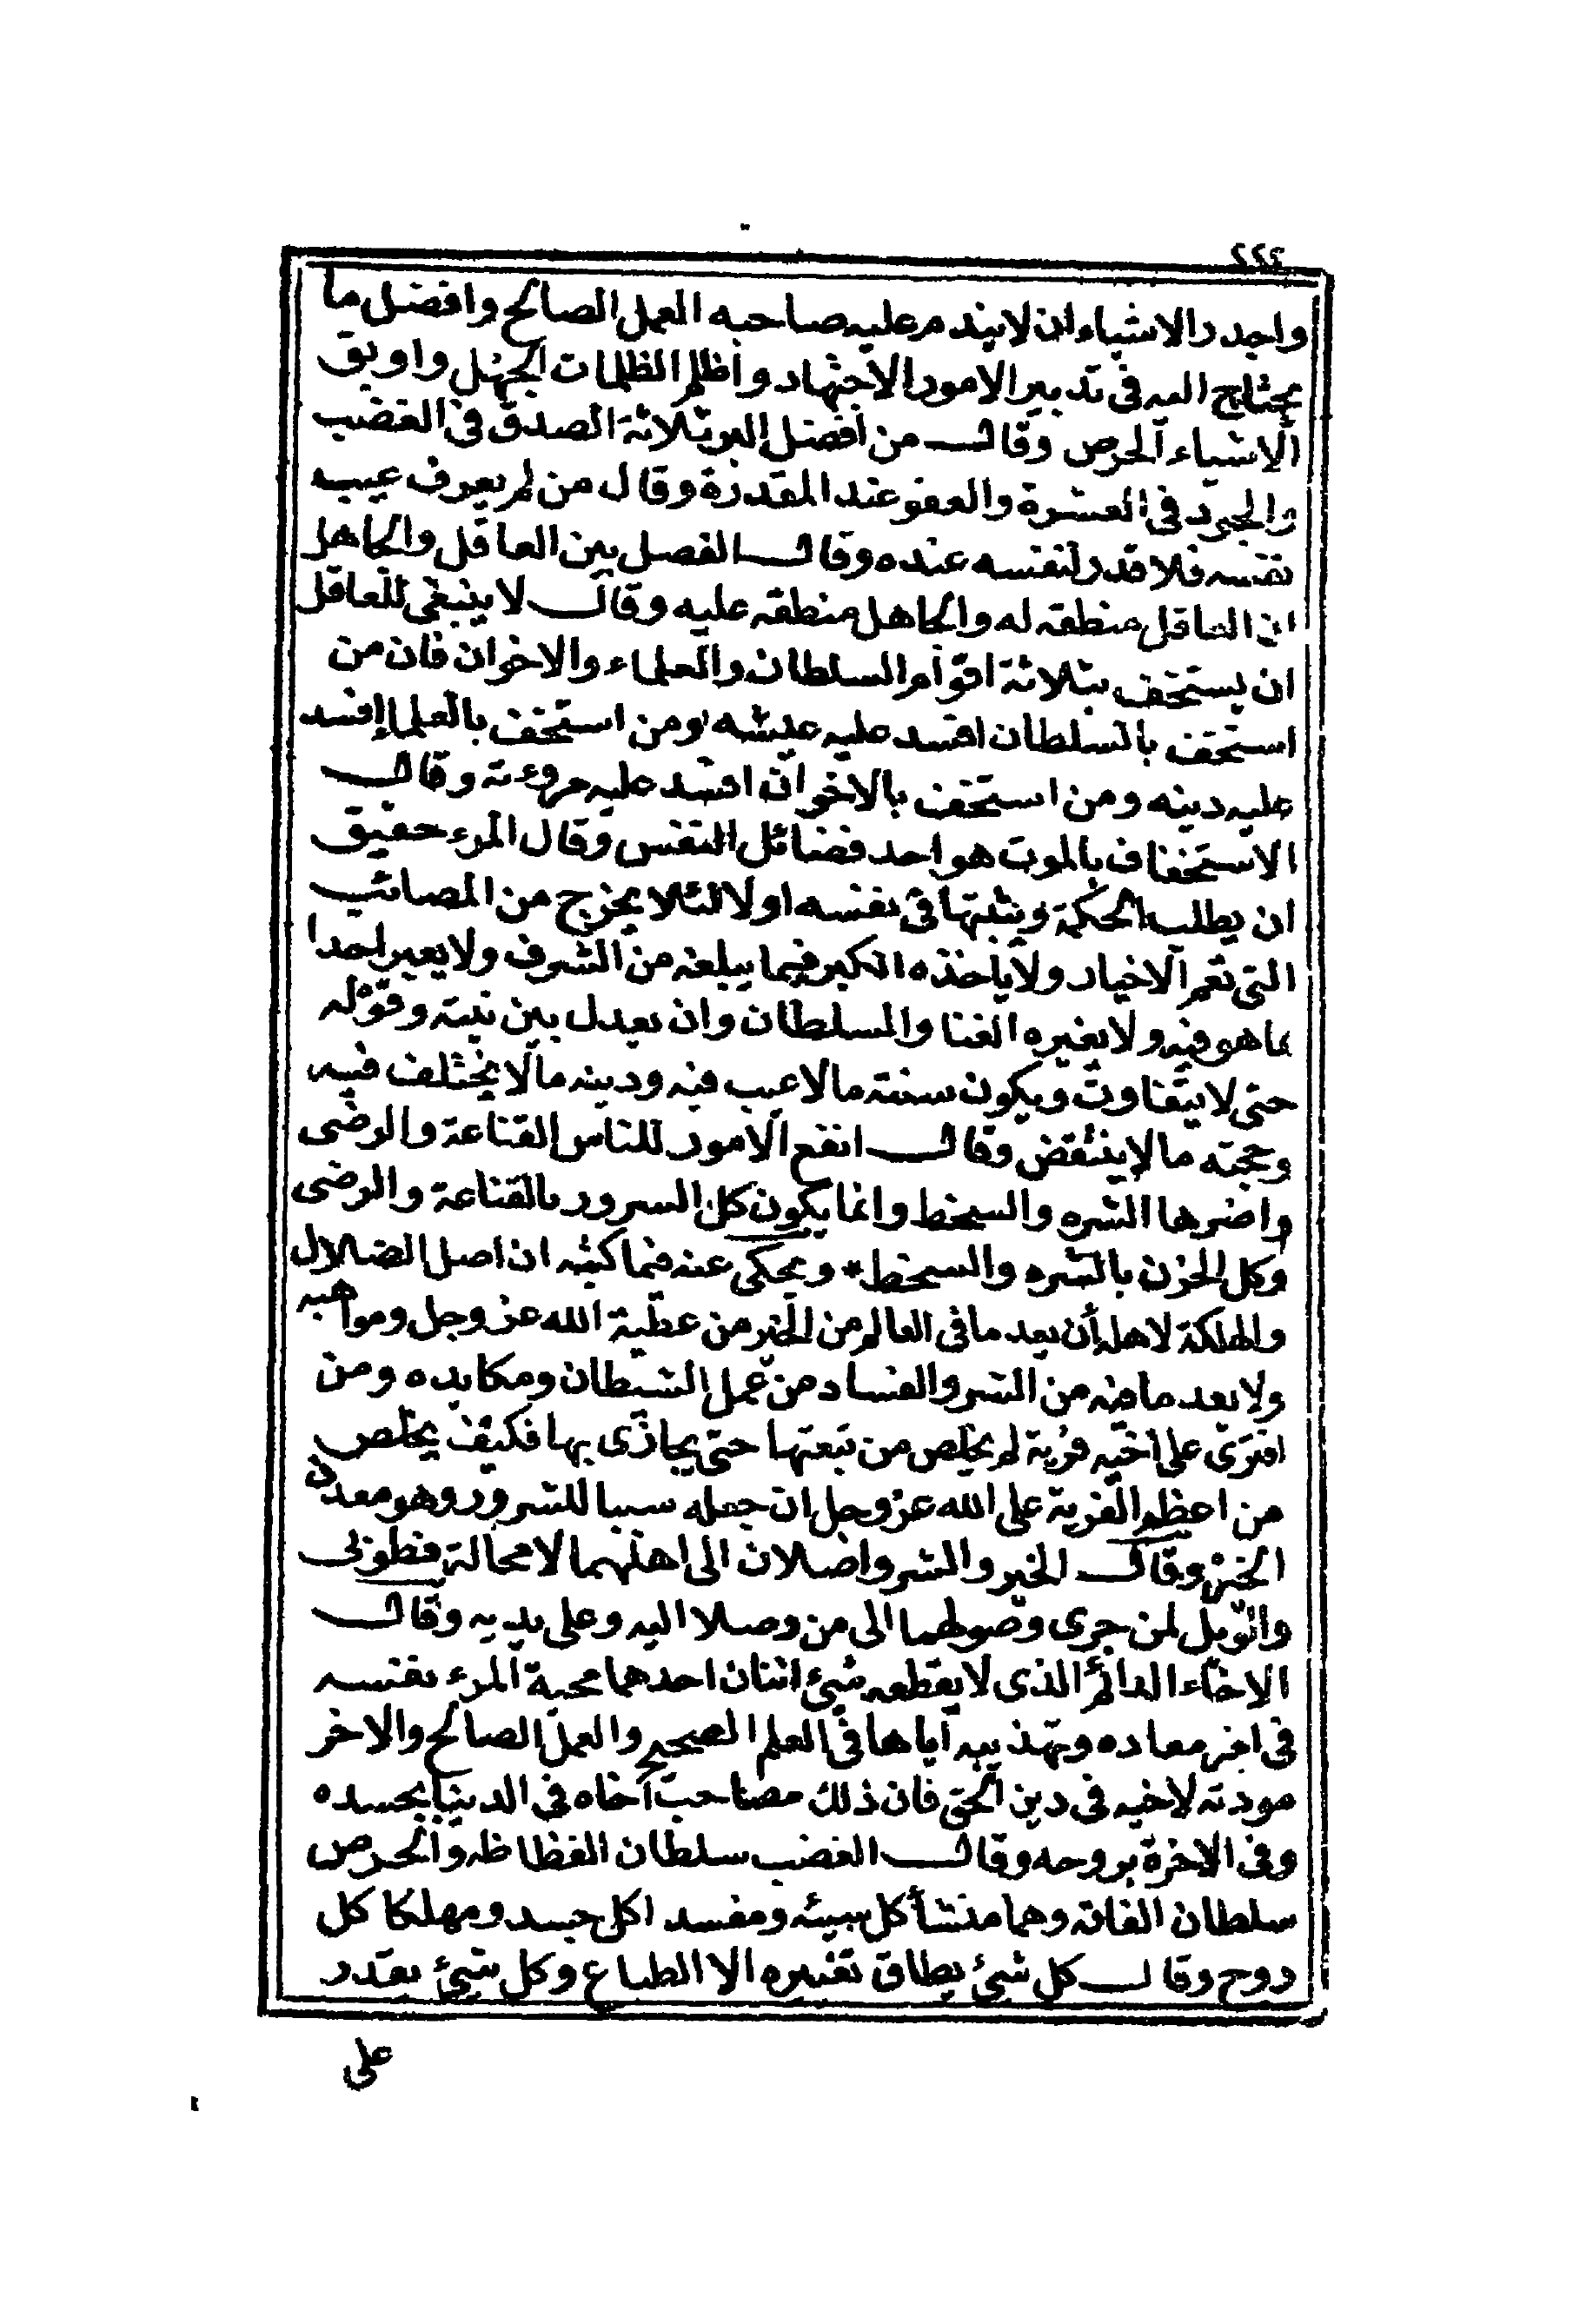 ٢٢٤
واجدر الاشياء ان لا يندم عليه صاحبه العمل الصالح وافضل ما
يحتاج اليه في تدبير الامور الاجتهاد واظلم الظلمات الجهل واوبق
الاشياء الحرص وقال من افضل البر ثلاثة الصدق في الغضب
والجود في العسرة والعفو عند المقدرة وقال من لم يعرف عيب
نفسه فلا قدر لنفسه عنده وقال الفصل بين العاقل والجاهل
ان العاقل منطقه له والجاهل منطقه عليه وقال لا ينبغي للعاقل
ان يستخف بثلاثة اقوام السلطان والعلماء والاخوان فان من
استخف بالسلطان افسد عليه عيشه ومن استخف بالعلما افسد
عليه دينه ومن استخف بالاخوان افسد عليه مروءته وقال
الاستخفاف بالموت هو احد فضائل النفس وقال المرء حقيق
ان يطلب الحكمة ويثبتها في نفسه اولا لئلا يخرج من المصائب
التي تعم الاخيار ولا ياخذه الكبر فيما يبلغه من الشرف ولا يعير احدا
بما هو فيه ولا يغيره الغنا والسلطان وان يعدل بين نيته وقوله
حتى لا يتفاوت ويكون سنته ما لا عيب فيه ودينه ما لا يختلف فيه
وحجته ما لا ينتقض وقال انفع الامور للناس القناعة والرضى
واضرها الشره والسخط وانما يكون كل السرور بالقناعة والرضى
وكل الحزن بالشره والسخط* ويحكى عنه فيما كتبه ان اصل الضلال
والهلكة لاهله أن يعد ما في العالم من الخير من عطية الله عز وجل ومواهبه
ولا يعد ما فيه من الشر والفساد من عمل الشيطان ومكايده ومن
افترى على اخيه فرية لم يخلص من تبعتها حتى يجازى بها فكيف يخلص
من اعظم الفرية على الله عز وجل ان جعله سببا للشرور وهو معدن
الخير وقال الخير والشر واصلان الى اهلهما لا محالة فطوبى
والويل لمن جرى وصولهما الى من وصلا اليه وعلى يديه وقال
الاخاء الدائم الذى لا يقطعه شئ اثنان احدهما محبة المرء نفسه
في اخر معاده وتهذيبه اياها في العلم الصحيح والعمل الصالح والاخر
مودته لاخيه في دين الحق فان ذلك مصاحب اخاه في الدنيا بجسده
وفي الاخرة بروحه وقال الغضب سلطان الفظاظه والحرص
سلطان الفاقه وهما منشأ كل سيئه ومفسد اكل جسد ومهلكا كل
روح وقال كل شئ يطاق تغييره الا الطباع وكل شئ يقدر
على